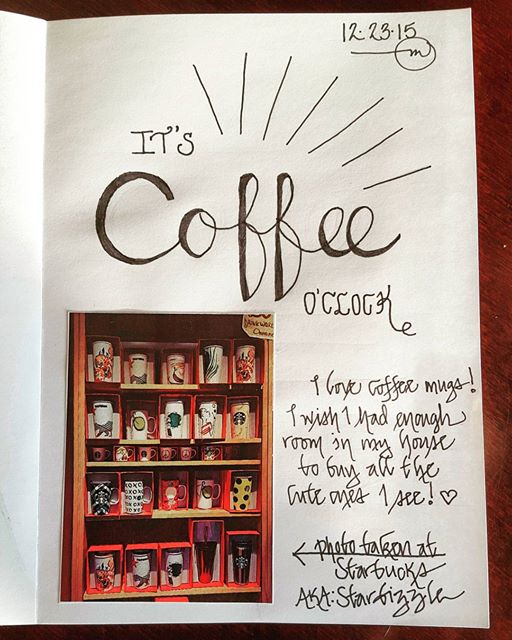 12.23.15
m
IT'S
Coffee
O'CLOCK
I love coffee mugs!
I wish I had enough
room in my house
to buy all the
cute ones I see! ♡
← photo taken at
Starbucks
AKA: Starfizzle
XOXO